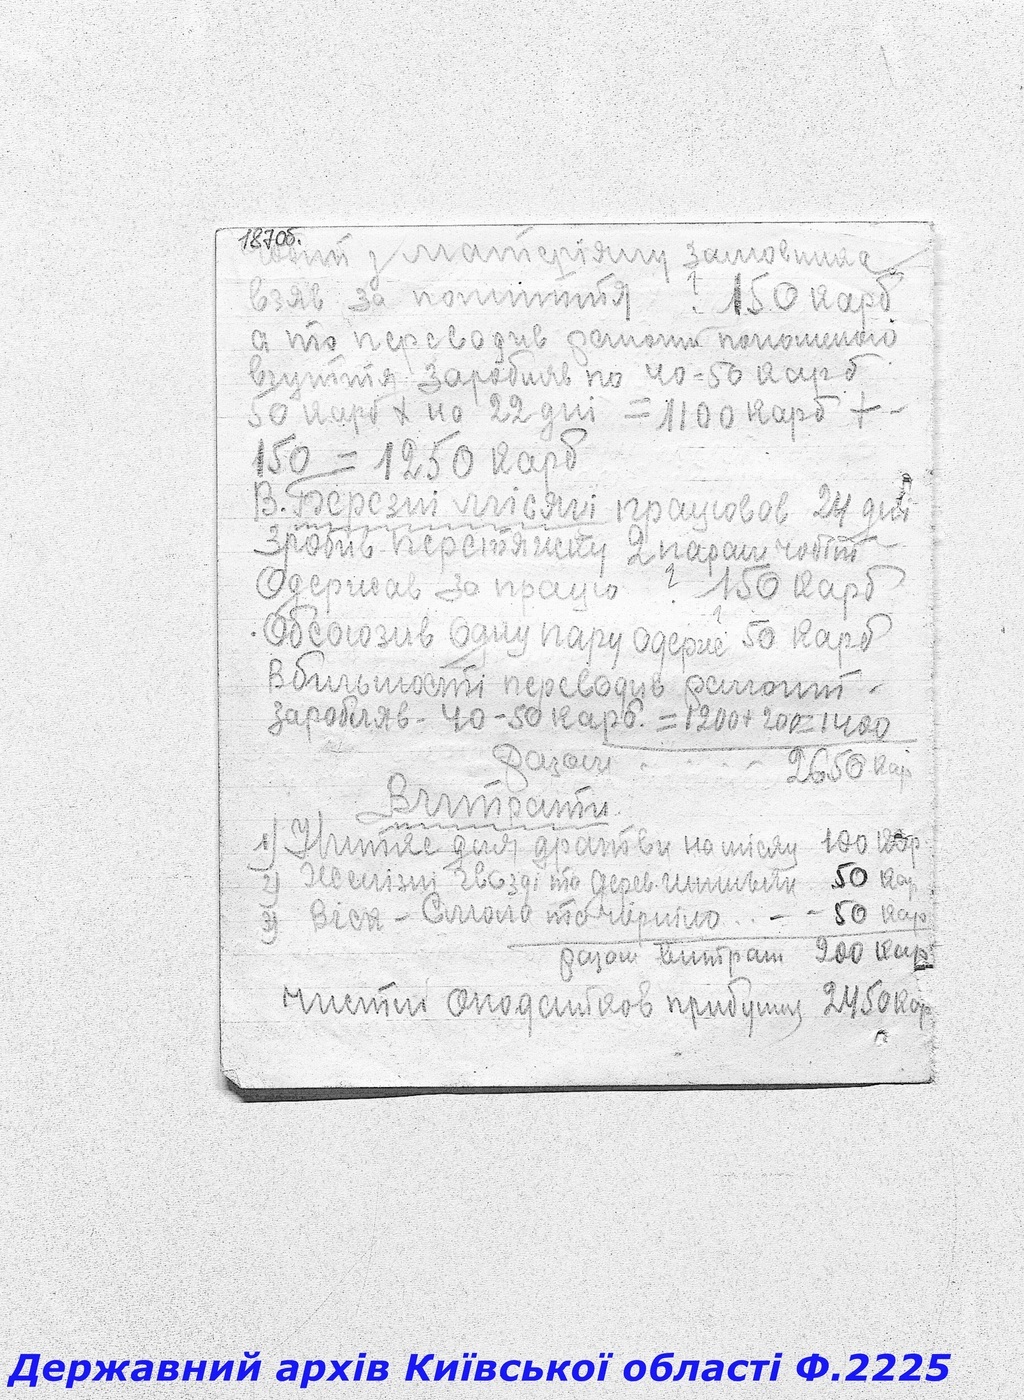 187об.
чобіт з матеріялу замовника
взяв за пошиття ! 150 карб
а то переводив ремонт поношеного
взуття заробляв по 40-50 карб
50 карб х на 22 дні = 1100 карб +-
150 = 1250 карб
В. Березні місяці працював 24 дні
Зробив перетяжку 2 парам чобіт
Одержав за працю ! 150 карб
Обсоюзив одну пару одерже 50 карб
В більшості переводив ремонт -
заробляв - 40-50 карб. = 1200+200=1400
разом 2650 кар
Витрати
1) для дратви на місяц 100 кар
2) Желізні гвозді та дерев. шпильки 50 кар
3) Віск - Смола та чорнило .. - - 50 кар
разом витрат 200 кар
чистий оподатков прибуток 2450 кар
Державний архів Київської області Ф.2225